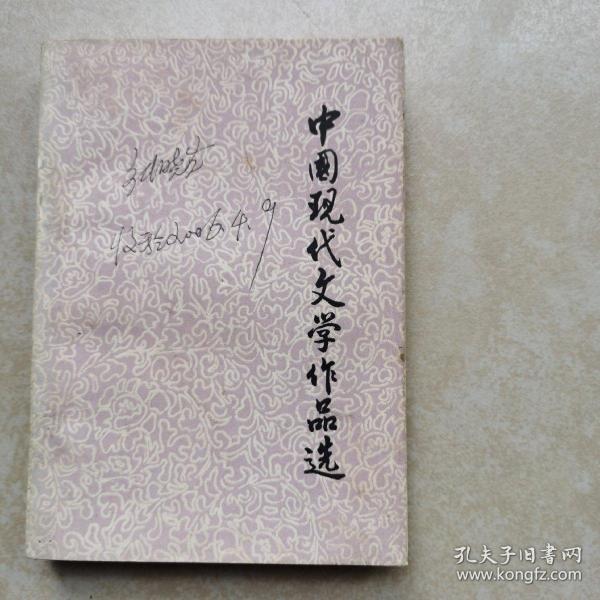 中国现代文学作品选
2006.4.9
孔夫子旧书网
www.kongfz.com